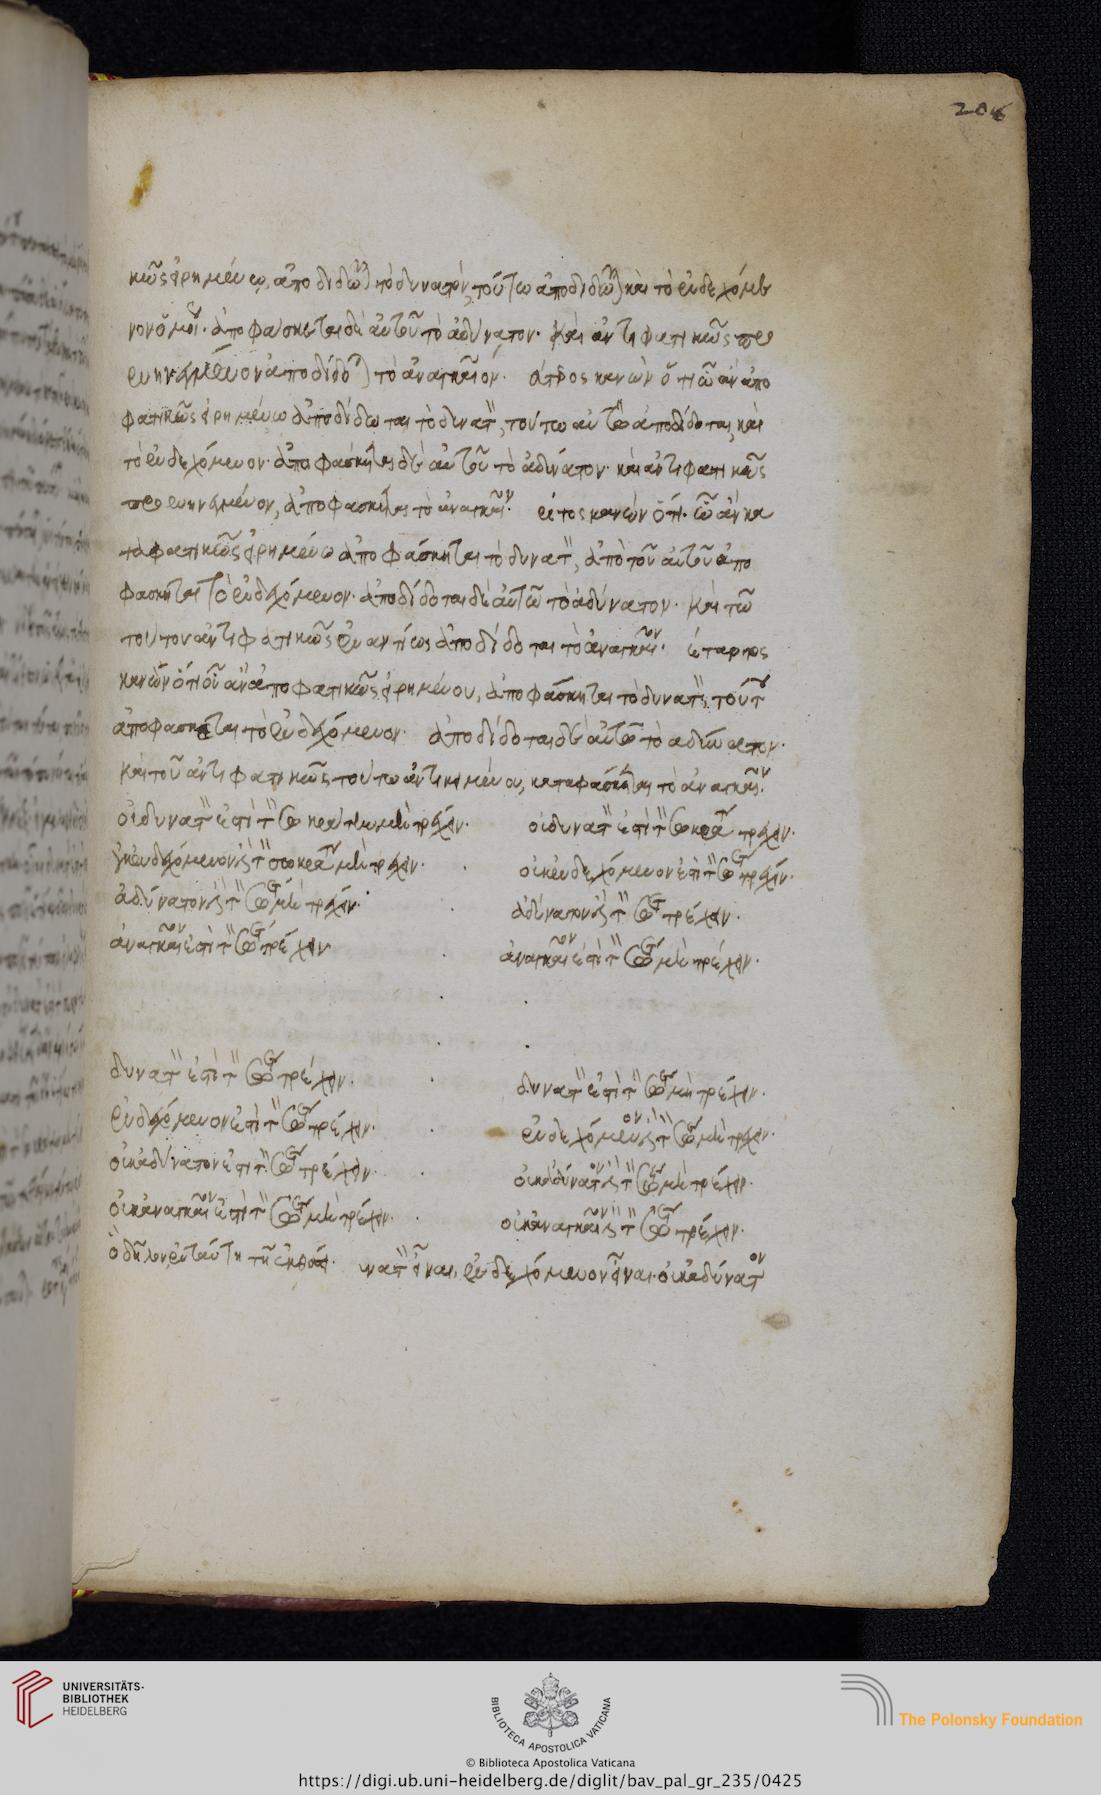 206
κῶς εἰρημένω, ἀποδίδωται τὸ δυνατόν, τούτω ἀποδίδωται καὶ τὸ ἐνδεχόμε
νον ὅμοι. ἀποφάσκεται δὲ αὐτοῦ τὸ ἀδύνατον. καὶ ἀντιφατικῶς
ἀποδίδοται τὸ ἀναγκαῖον. κανὼν ὅτι ὧ ἂν ἀπο
φατικῶς εἰρημένω ἀποδίδωται τὸ δυνατ, τούτω αὐτῶ ἀποδίδοται, καὶ
τὸ ἐνδεχόμενον. ἀποφάσκεται δὲ αὐτοῦ τὸ ἀδύνατον. καὶ ἀντιφατικῶς
ἀποφάσκεται τὸ ἀναγκαῖον. κανὼν ὅτι ὧ ἂν κα
ταφατικῶς εἰρημένω ἀποφάσκηται τὸ δυνατ, ἀπὸ τοῦ αὐτοῦ ἀπο
φάσκηται τὸ ἐνδεχόμενον. ἀποδίδοται δὲ αὐτῶ τὸ ἀδύνατον. καὶ τῶ
τούτου ἀντιφατικῶς ἐναντίως ἀποδίδοται τὸ ἀναγκαῖον. τέταρτος
κανὼν ὅτι οὗ ἂν ἀποφατικῶς εἰρημένου, ἀποφάσκηται τὸ δυνατ, τούτ
ἀποφασκεται τὸ ἐνδεχόμενον. ἀποδίδοται δὲ αὐτῶ τὸ αδύνατον.
καὶ τοῦ ἀντιφατικῶς τούτω ἀντικειμένου, καταφάσκεται τὸ ἀναγκαῖον.
οὐ δυνατ ἐστὶ τ σωκράτην μὴ τρέχειν. οὐ δυνατ ἐστὶ τ σωκρατ τρέχειν.
οὐκ ἐνδεχόμενον ἐστὶ τ σωκρατ μὴ τρέχειν. οὐκ ἐνδεχόμενον ἐστὶ τ σω τρέχειν.
ἀδύνατον ἐστὶ τ σω μὴ τρέχειν. ἀδύνατον ἐστὶ τ σω τρέχειν.
ἀναγκαῖον ἐστὶ τ σω τρέχειν. ἀναγκαῖον ἐστὶ τ σω μὴ τρέχειν.
δυνατ ἐστὶ τ σω τρέχειν. δυνατ ἐστὶ τ σω μὴ τρέχειν.
ἐνδεχόμενον ἐστὶ τ σω τρέχειν. ἐνδεχόμενον ἐστὶ τ σω μὴ τρέχειν.
οὐκ ἀδύνατον ἐστὶ τ σω τρέχειν. οὐκ ἀδύνατον ἐστὶ τ σω μὴ τρέχειν.
οὐκ ἀναγκαῖον ἐστὶ τ σω μὴ τρέχειν. οὐκ ἀναγκαῖον ἐστὶ τ σω τρέχειν.
ὁ δῆλον ἐν ταύτη τῆ νατ εἶναι, ἐνδεχόμενον εἶναι. οὐκ ἀδύνατον
UNIVERSITÄTS-
BIBLIOTHEK
HEIDELBERG
BIBLIOTECA APOSTOLICA VATICANA
The Polonsky Foundation
© Biblioteca Apostolica Vaticana
https://digi.ub.uni-heidelberg.de/diglit/bav_pal_gr_235/0425